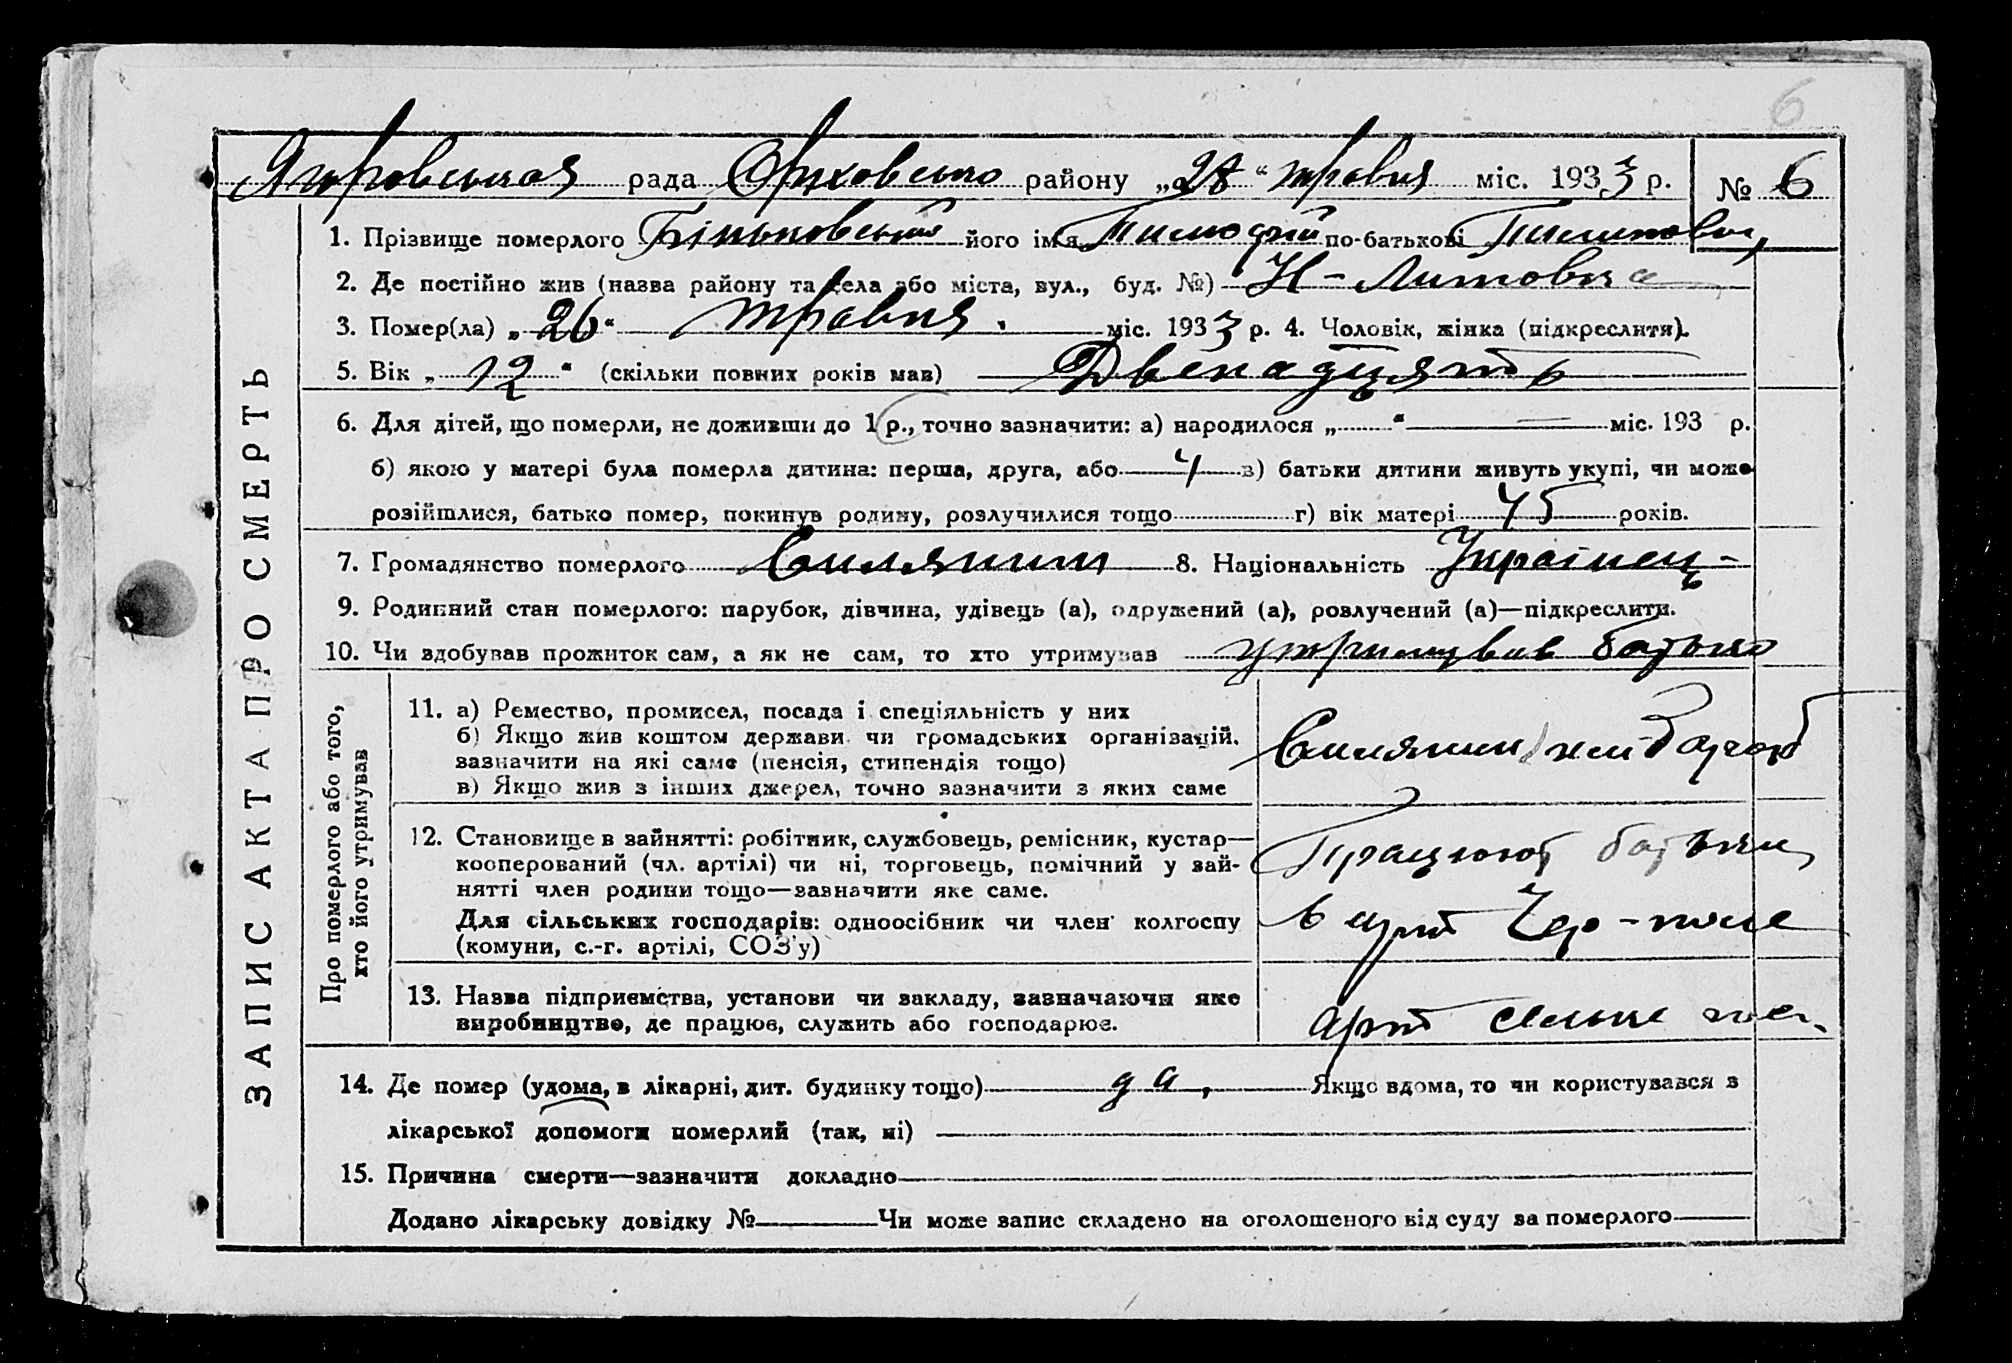 6
рада району „28“ травня міс. 1933 р. № 6
1. Прізвище померлого його ім'я Тимофій по-батькові
2. Де постійно жив (назва району та села або міста, вул., буд. №) Н-Литовка
3. Помер(ла) „26“ травня. міс. 1933 р. 4. Чоловік, жінка (підкреслити).
5. Вік „12“ (скільки повних років мав) Двенадцять
6. Для дітей, що померли, не доживши до 1 р., точно зазначити: а) народилося „ “ міс. 193 р.
б) якою у матері була померла дитина: перша, друга, або 4 в) батьки дитини живуть укупі, чи може
розійшлися, батько помер, покинув родину, розлучилися тощо г) вік матері 45 років.
7. Громадянство померлого Силянин 8. Національність Українец-
9. Родинний стан померлого: парубок, дівчина, удівець (а), одружений (а), розлучений (а)—підкреслити.
10. Чи здобував прожиток сам, а як не сам, то хто утримував утримував батько
ЗАПИС АКТА ПРО СМЕРТЬ
Про померлого або того,
хто його утримував
11. а) Ремество, промисел, посада і спеціяльність у них
б) Якщо жив коштом держави чи громадських організацій,
зазначити на які саме (пенсія, стипендія тощо)
в) Якщо жив з інших джерел, точно зазначити з яких саме
Силянин
12. Становище в зайнятті: робітник, службовець, ремісник, кустар—
кооперований (чл. артілі) чи ні, торговець, помічний у зай-
нятті член родини тощо—зазначити яке саме.
Для сільських господарів: одноосібник чи член колгоспу
(комуни, с.-г. артілі, СОЗ'у)
Працюют батьки
в
13. Назва підприємства, установи чи закладу, зазначаючи яке
виробництво, де працює, служить або господарює.
арт
14. Де помер (удома, в лікарні, дит. будинку тощо) да, Якщо вдома, то чи користувався з
лікарської допомоги померлий (так, ні)
15. Причина смерти—зазначити докладно
Додано лікарську довідку № Чи може запис складено на оголошеного від суду за померлого